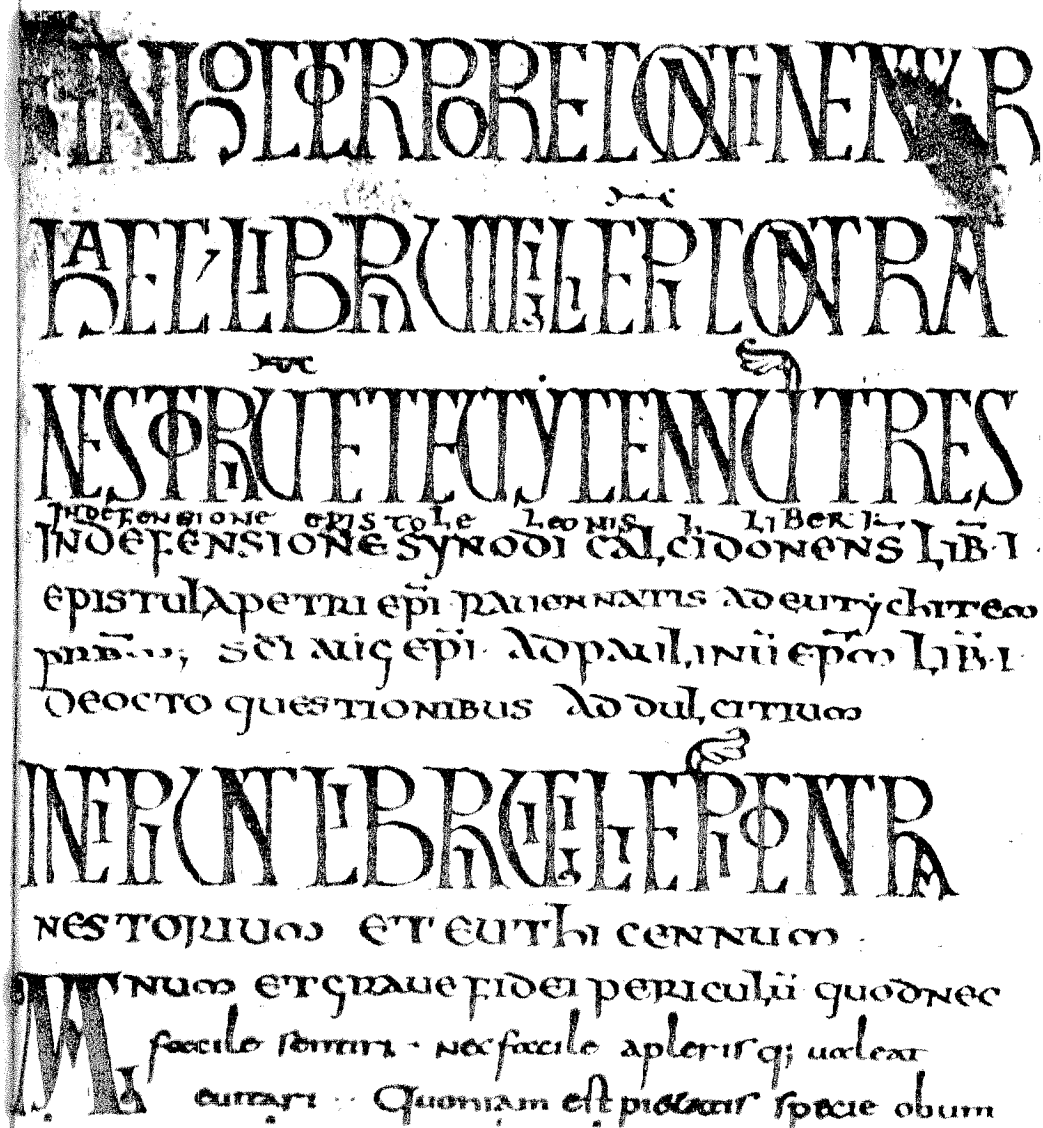 IN HOC CORPORE CONTINENTUR
HAEC LIBRI UIGILII EPI CONTRA
NESTORIU ET EUTYCENNU TRES
IN DEFENSIONE EPISTOLE LEONIS I LIBER I
IN DEFENSIONE SYNODI CALCIDONENS LIB I
EPISTULA PETRI EPI RAUENNATIS AD EUTYCHITEM
PRB; SCI AUG EPI AD PAULINU EPM LIB I
DE OCTO QUESTIONIBUS AD DULCITIUM
INCIPIUNT LIBRI UIGILII EPI CONTRA
NESTORIUM ET EUTHICENNUM
MAGNUM ET GRAUE FIDEI PERICULU QUOD NEC
facile sentiri · nec facile a plerisq; ualeat
euitari Quoniam est pietatis specie obum